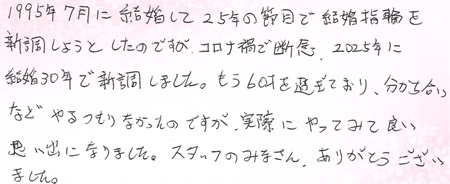 1995年7月に結婚して25年の節目で結婚指輪を
新調しようとしたのですが、コロナ禍で断念、2025年に
結婚30年で新調しました。もう60才を過ぎており、分かち合い
などやるつもりなかったのですが、実際にやってみて良い
思い出になりました。スタッフのみなさん、ありがとうござい
ました。